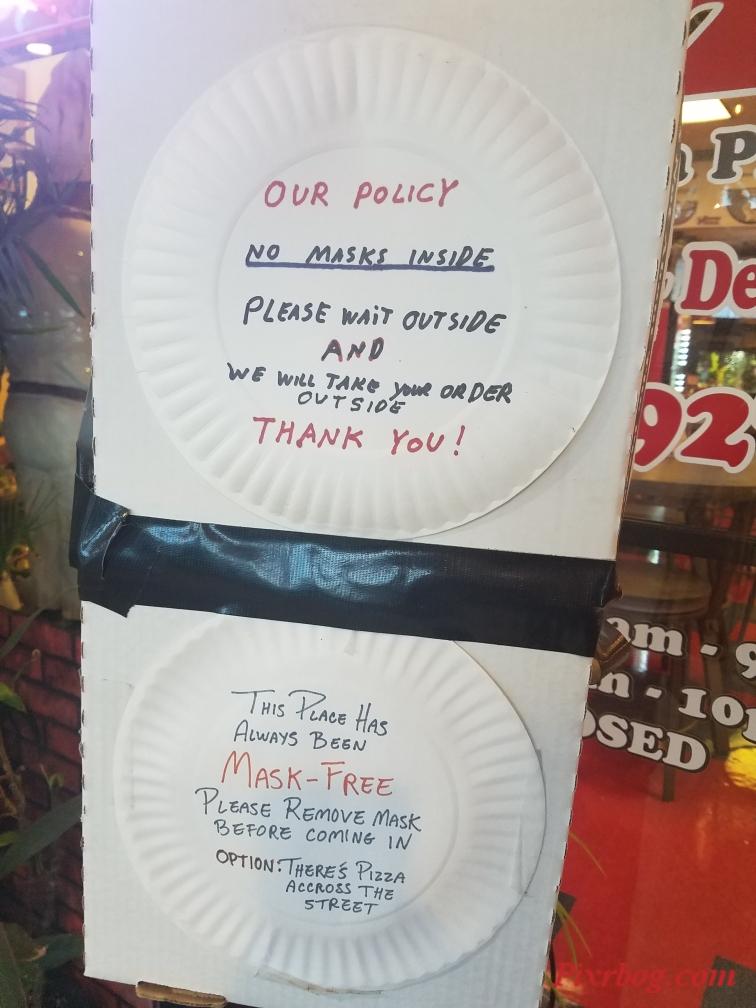 OUR POLICY
NO MASKS INSIDE
PLEASE WAIT OUTSIDE
AND
WE WILL TAKE your ORDER
OUTSIDE
THANK YOU!
THIS PLACE HAS
ALWAYS BEEN
MASK-FREE
PLEASE REMOVE MASK
BEFORE COMING IN
OPTION: THERE'S PIZZA
ACCROSS THE
STREET
De
92
am - 9
- 10p
OSED
Pixrbog.com